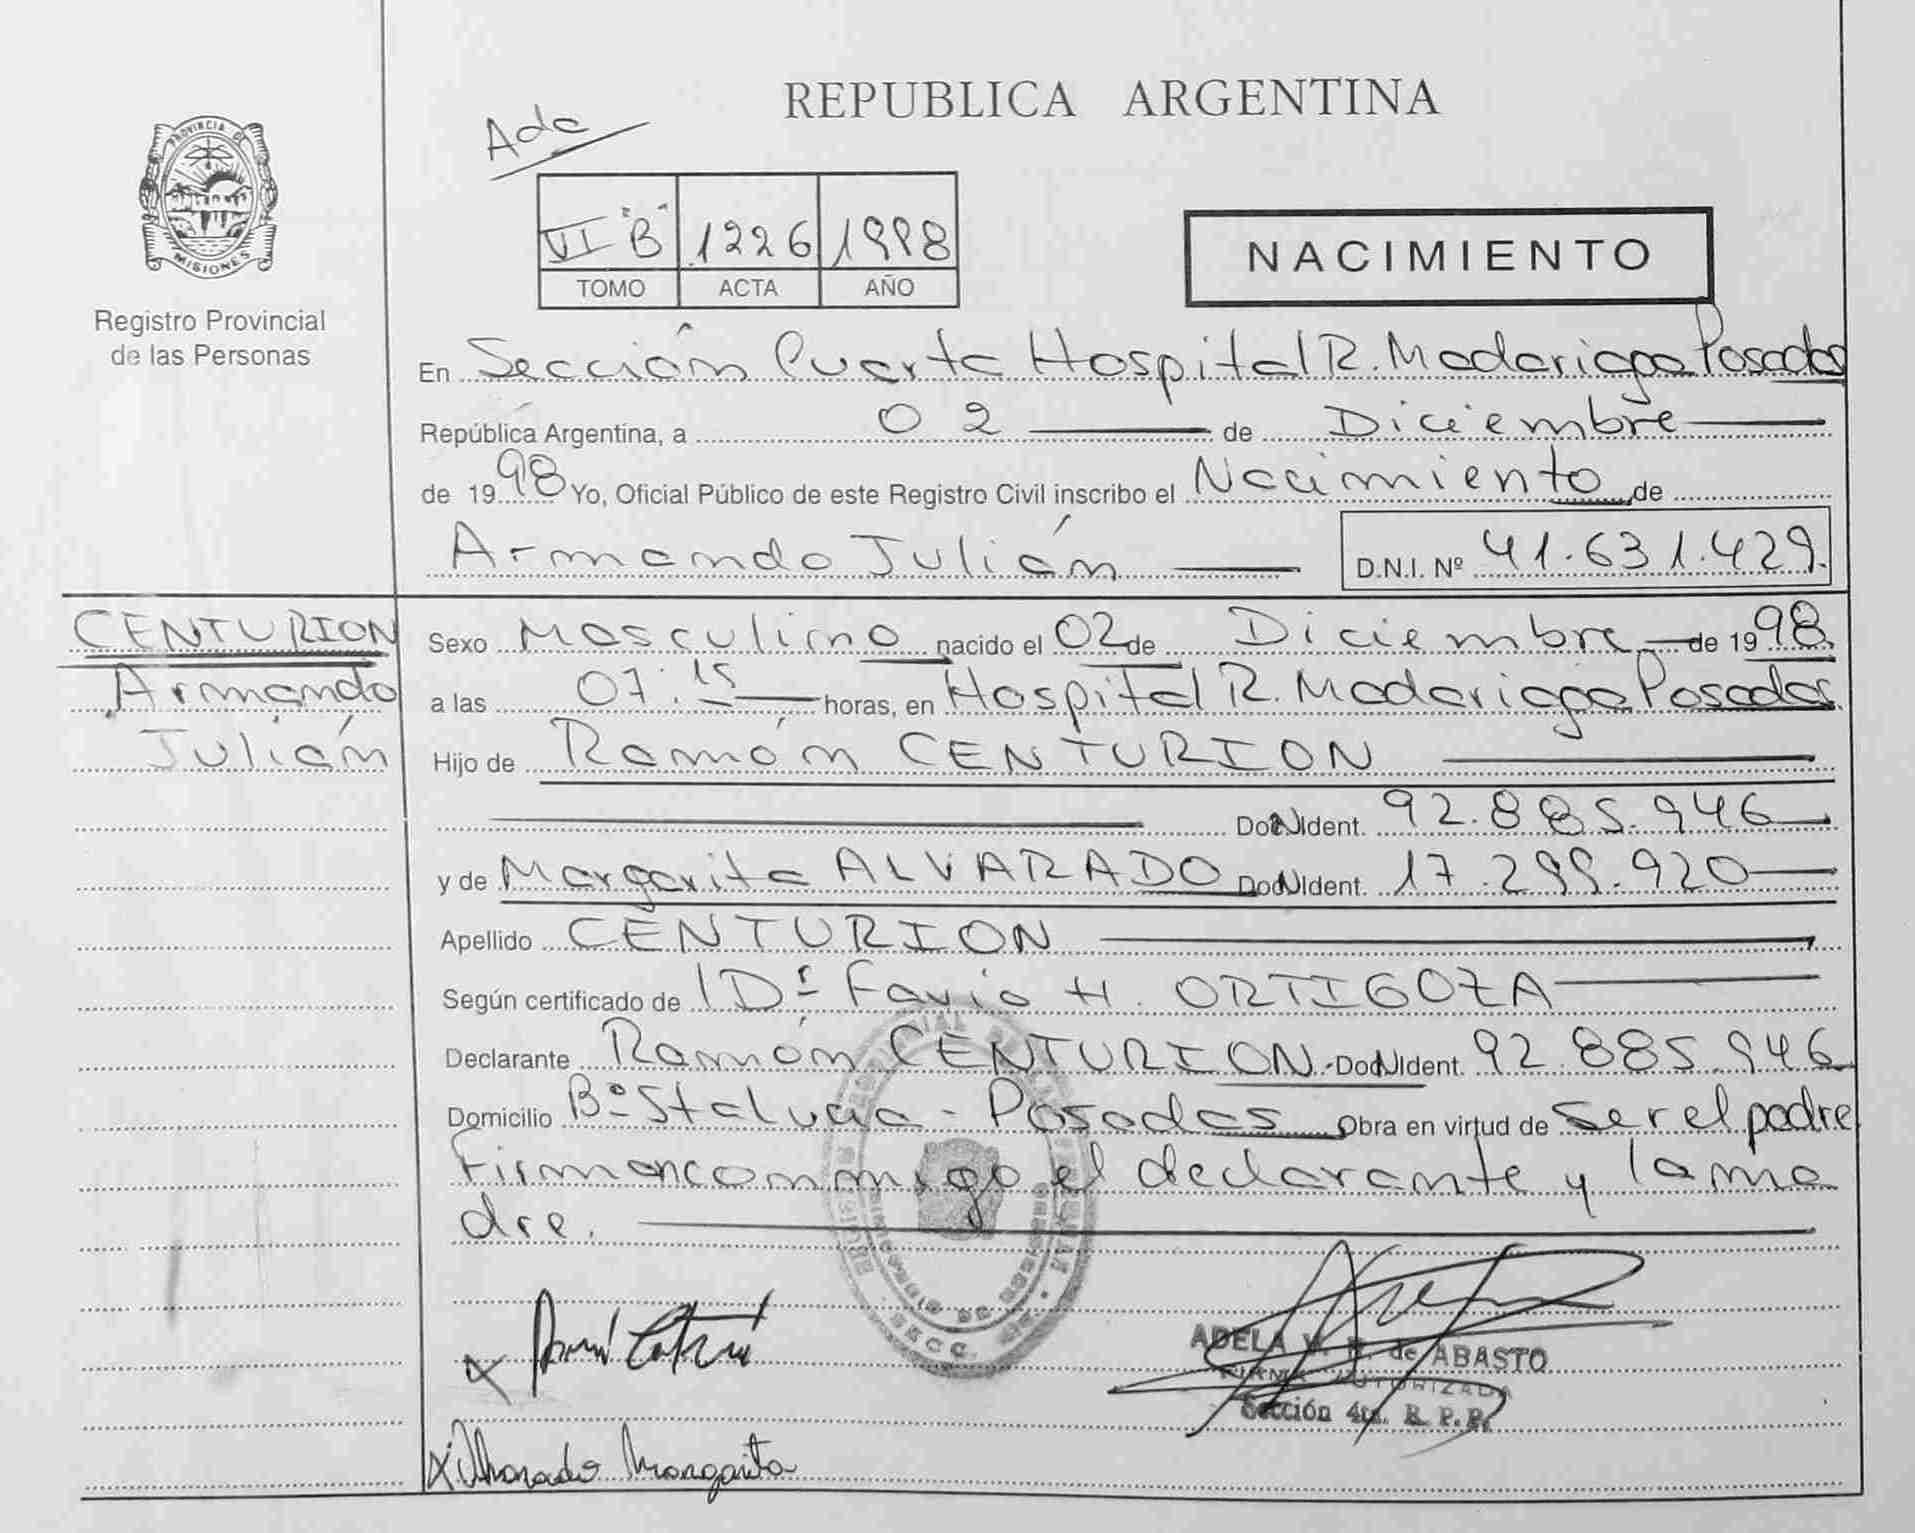 REPUBLICA ARGENTINA
PROVINCIA DE
MISIONES
Registro Provincial
de las Personas
Ada
VI "B" 1226 1998
TOMO ACTA AÑO
NACIMIENTO
En Sección Cuarta Hospital R. Madariaga Posadas
República Argentina, a 02 de Diciembre
de 1998 Yo, Oficial Público de este Registro Civil inscribo el Nacimiento de
Armando Julián D.N.I. Nº 41.631.429.
CENTURION
Armando
Julián
Sexo Masculino nacido el 02 de Diciembre de 1998.
a las 07:15 horas, en Hospital R. Madariaga Posadas.
Hijo de Ramón CENTURION
Doc N Ident. 92.885.946
y de Margarita ALVARADO Doc N Ident. 17.299.920
Apellido CENTURION
Según certificado de Dr Favio H. ORTIGOZA
Declarante Ramón CENTURION. Doc N Ident. 92.885.946
Domicilio Bº Sta Lucia - Posadas Obra en virtud de ser el padre
Firman conmigo el declarante y la ma
dre.
ADELA V. R. de ABASTO
FIRMA AUTORIZADA
Sección 4ta. R. P. P.
x Alvarado Margarita